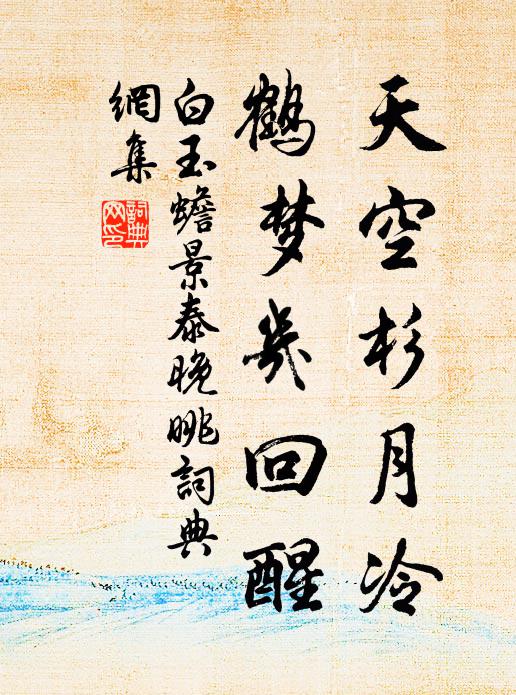 天空杉月冷
鹤梦几回醒
白玉蟾景泰晚眺詞典
網集
詞典
网印